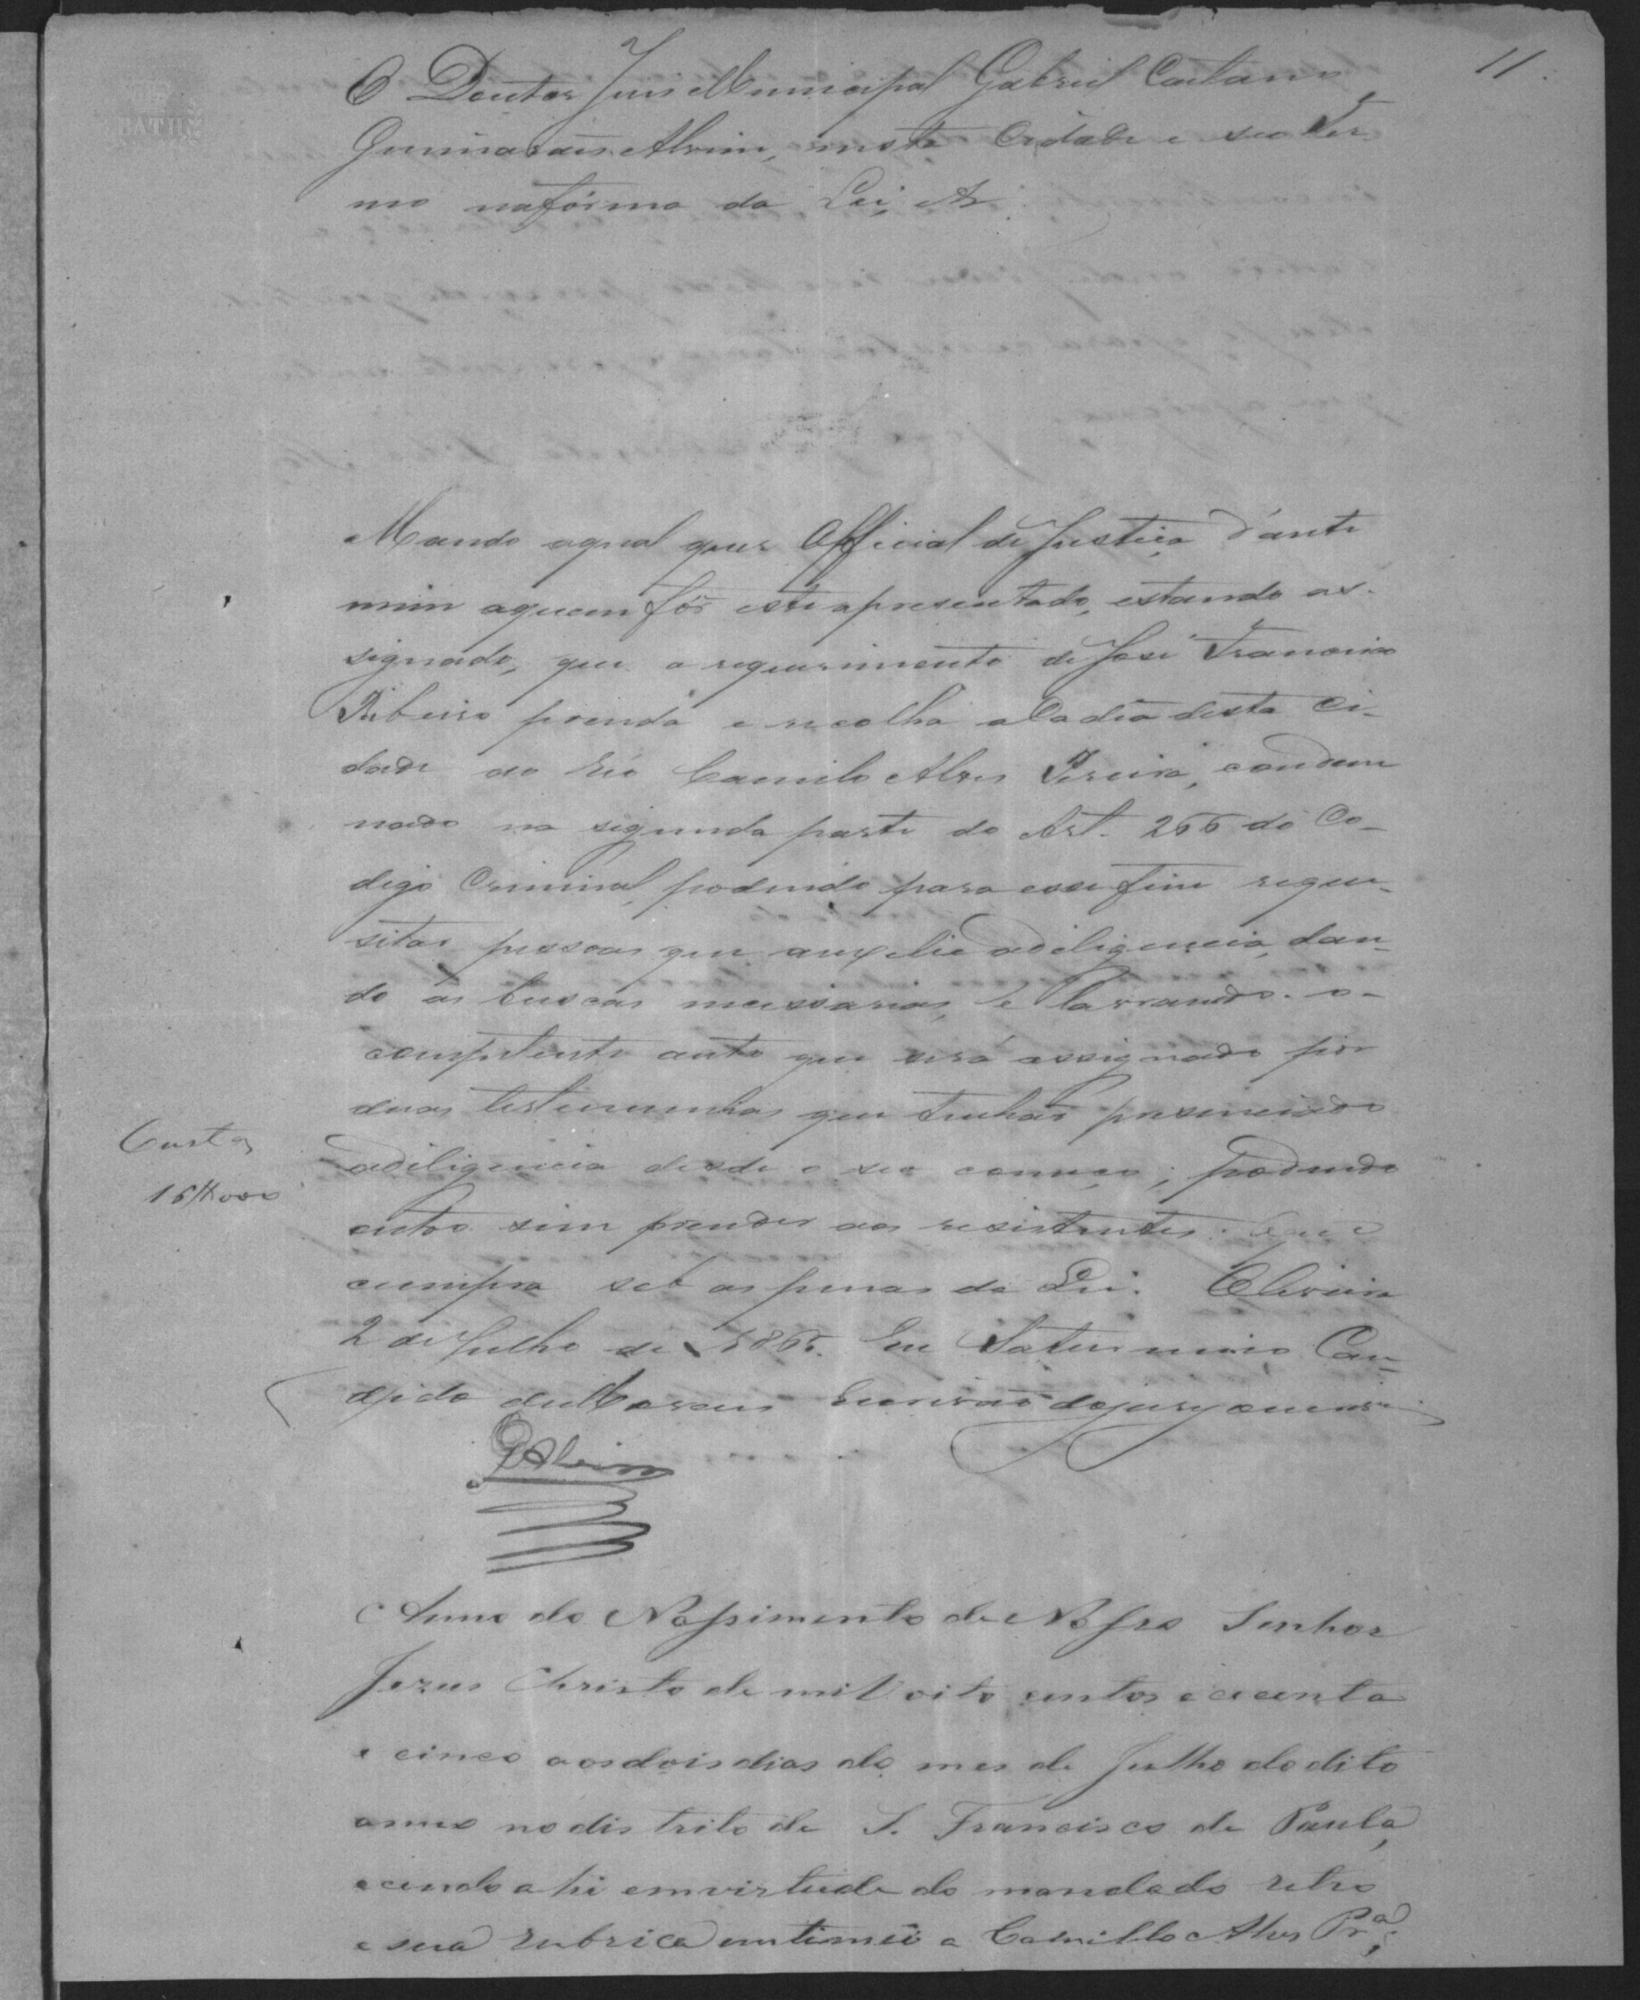 11.
O Doutor Juis Municipal Gabriel Caetano
Guimaraens Alvim, nesta Cidade e seo Ter-
mo na fórma da Lei, &
Mando aqual quer Official de Justiça d'ante
mim aquem fôr este apresentado, estando as-
signado, que a requerimento de José Francisco
Ribeiro prenda e recolha a Cadêa desta Ci-
dade ao Réo Camilo Alves Pereira, condem
nado na segunda parte do Art. 266 do Co-
digo Criminal, podendo para esse fim requi-
sitar pessoas que auxilie adiligencia, dan-
do as buscas necessarias, e lavrando o
competente auto que será assignado por
duas testemunhas que tenhão presenciado
adiligencia desde o seo começo; podendo
outro sim prender aos resistentes. Que
cumpra sob as penas da Lei. Oliveira
2 de Julho de 1865. Eu Saturnino Can-
dido de Escrivão do jury
Custas
16#000
GAlvim
Anno do Nassimento de Nosso Senhor
Jezus Christo de mil oito centos e cecenta
e cinco aos dois dias do mes de Julho do dito
anno no distrito de S. Francisco de Paula,
e cendo ahi em virtude do mandado retro
e sua rubrica intimei a Camillo Alves Pr.ª;
BATH